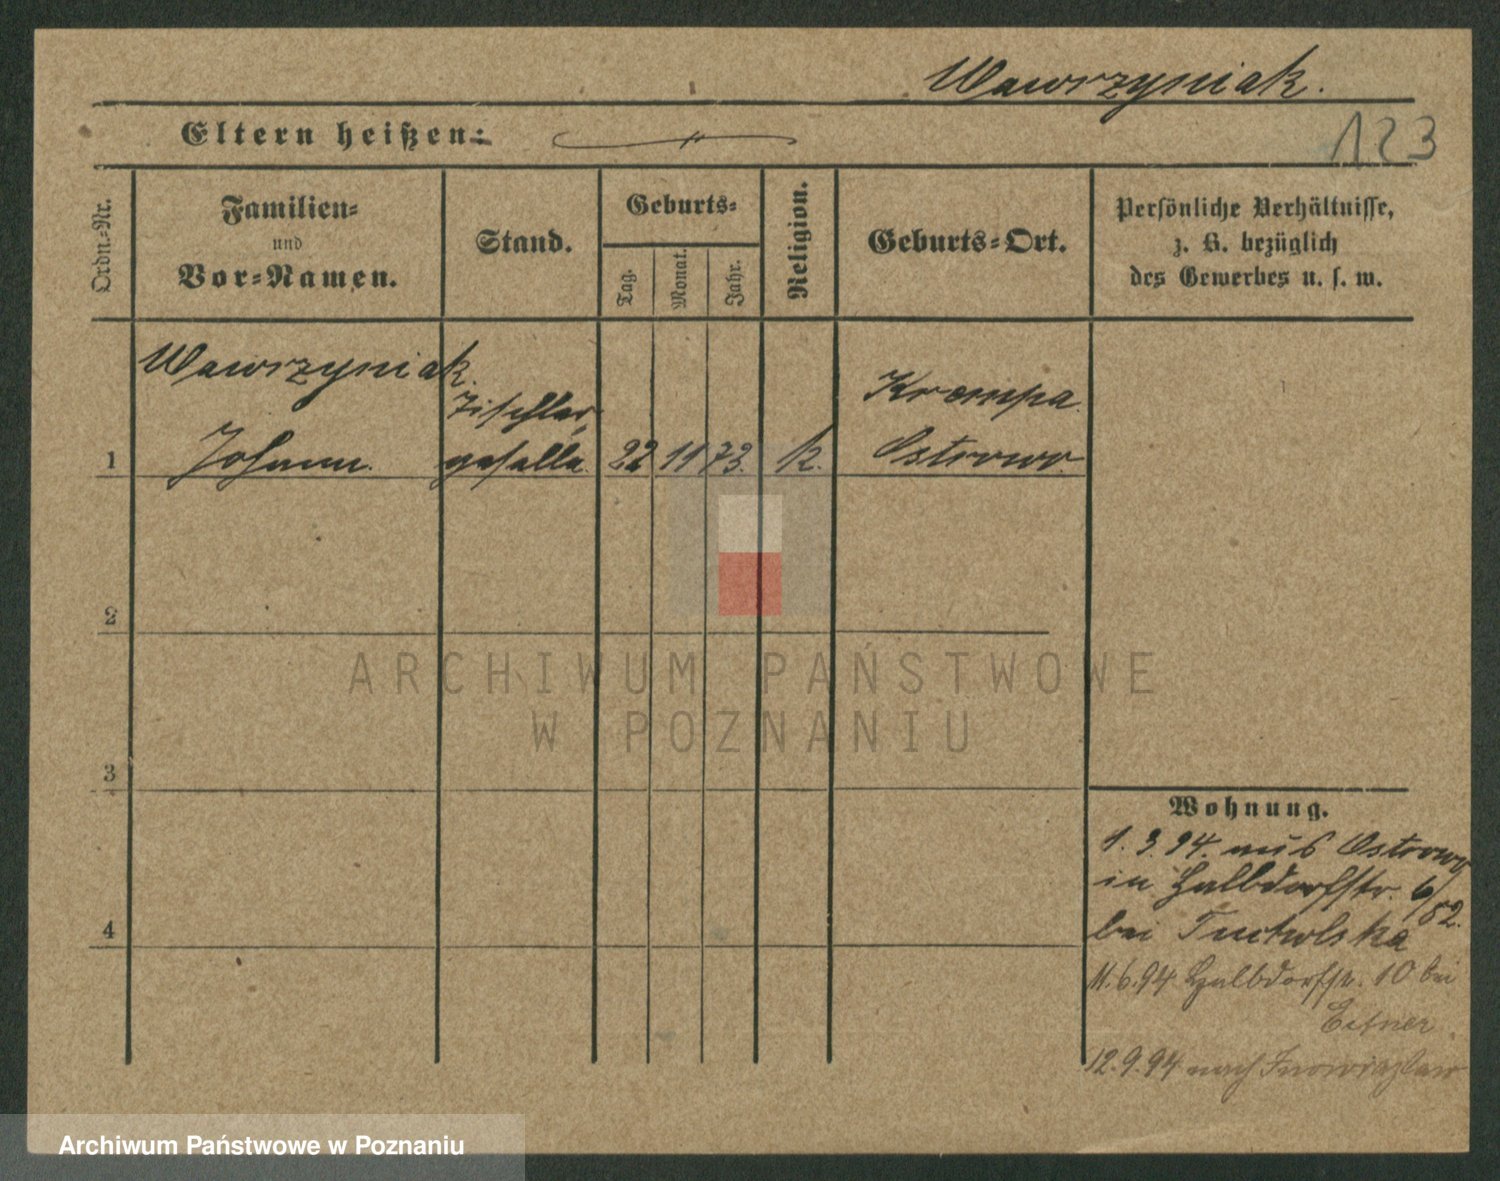 Wawrzyniak.
Eltern heißen:
123
Ordn.-Nr.
Familien-
und
Vor-Namen.
Stand.
Geburts-
Tag.
Monat.
Jahr.
Religion.
Geburts-Ort.
Persönliche Verhältnisse,
z. B. bezüglich
des Gewerbes u. s. w.
Wawrzyniak
Johann.
Tischler-
geselle
22
11
73.
k.
Krempa
Ostrowo
1
2
3
4
Wohnung.
1.3.94. aus Ostrowo
in Halbdorfstr. 6/52.
bei Tucholska
11.6.94 Halbdorfstr. 10 bei
Eitner
12.9.94 nach Inowrazlaw
ARCHIWUM PAŃSTWOWE
W POZNANIU
Archiwum Państwowe w Poznaniu